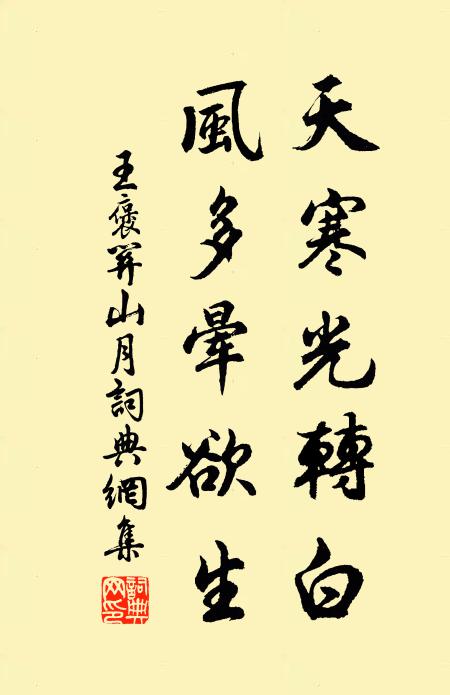 天寒光轉白
風多暈欲生
王褒關山月詞典網集
詞典网印